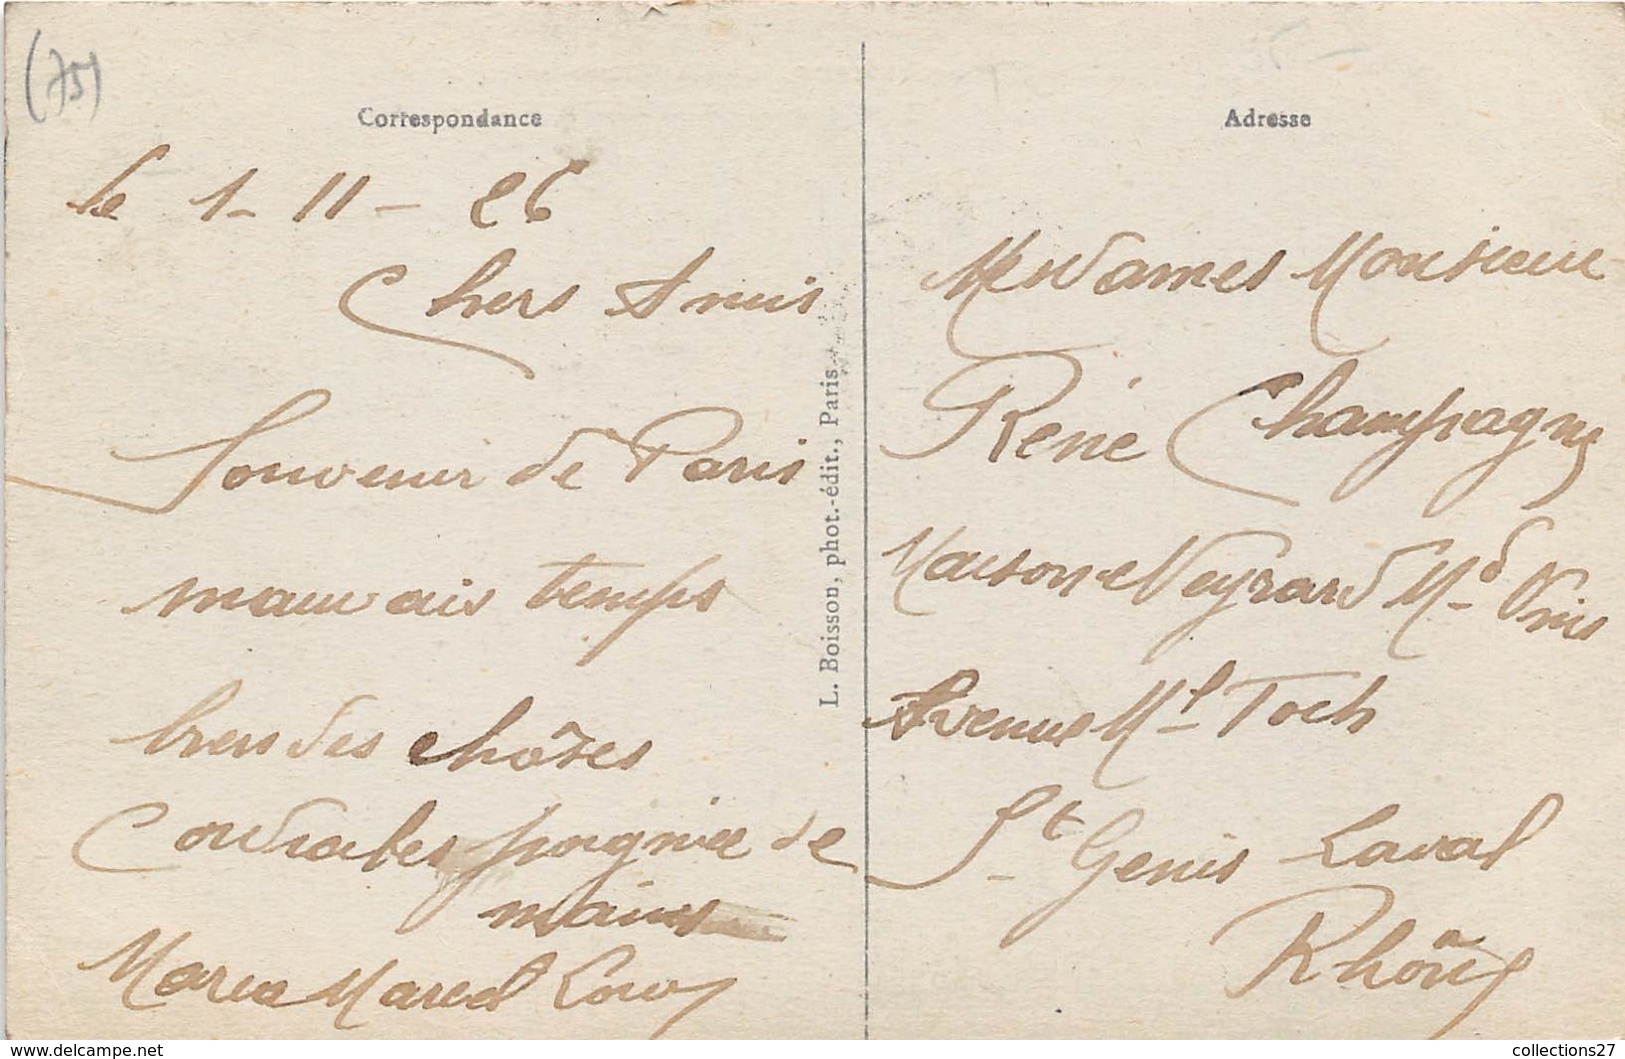 (75)
Correspondance
le 1-11-26
Chers Amis
Souvenir de Paris
mauvais temps
bien des chôses
Cordiales poignée de
mains
Maria Marcel Louis
L. Boisson, phot.-édit., Paris
Adresse
Medames Monsieur
René Champagne
Maison Veyrard Md Vins
Avenue Mal Foch
St Genis Laval
Rhône
www.delcampe.net
collections27